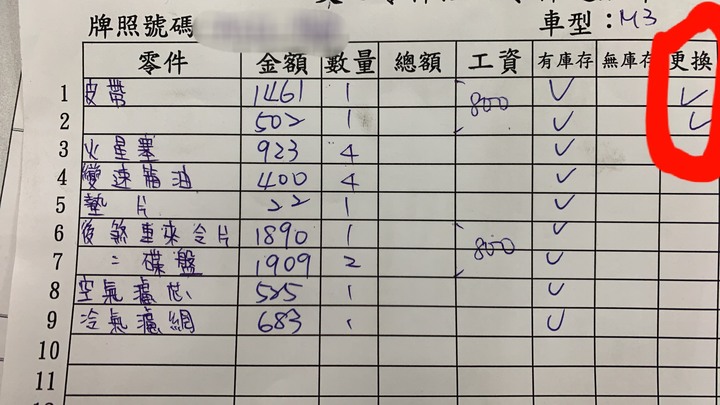 牌照號碼 車型:M3
零件 金額 數量 總額 工資 有庫存 無庫存 更換
1 皮帶 1461 1 800 ✓ ✓
2 502 1 ✓ ✓
3 火星塞 923 4 ✓
4 變速箱油 400 4 ✓
5 墊片 22 1 ✓
6 後煞車來令片 1890 1 800 ✓
7 〃 碟盤 1909 2 ✓
8 空氣濾芯 1 ✓
9 冷氣濾網 683 1 ✓
10
11